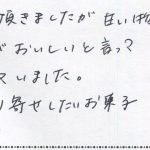 頂きましたが甘いばな
がおいしいと言って
ていました。
り寄せしたいお菓子